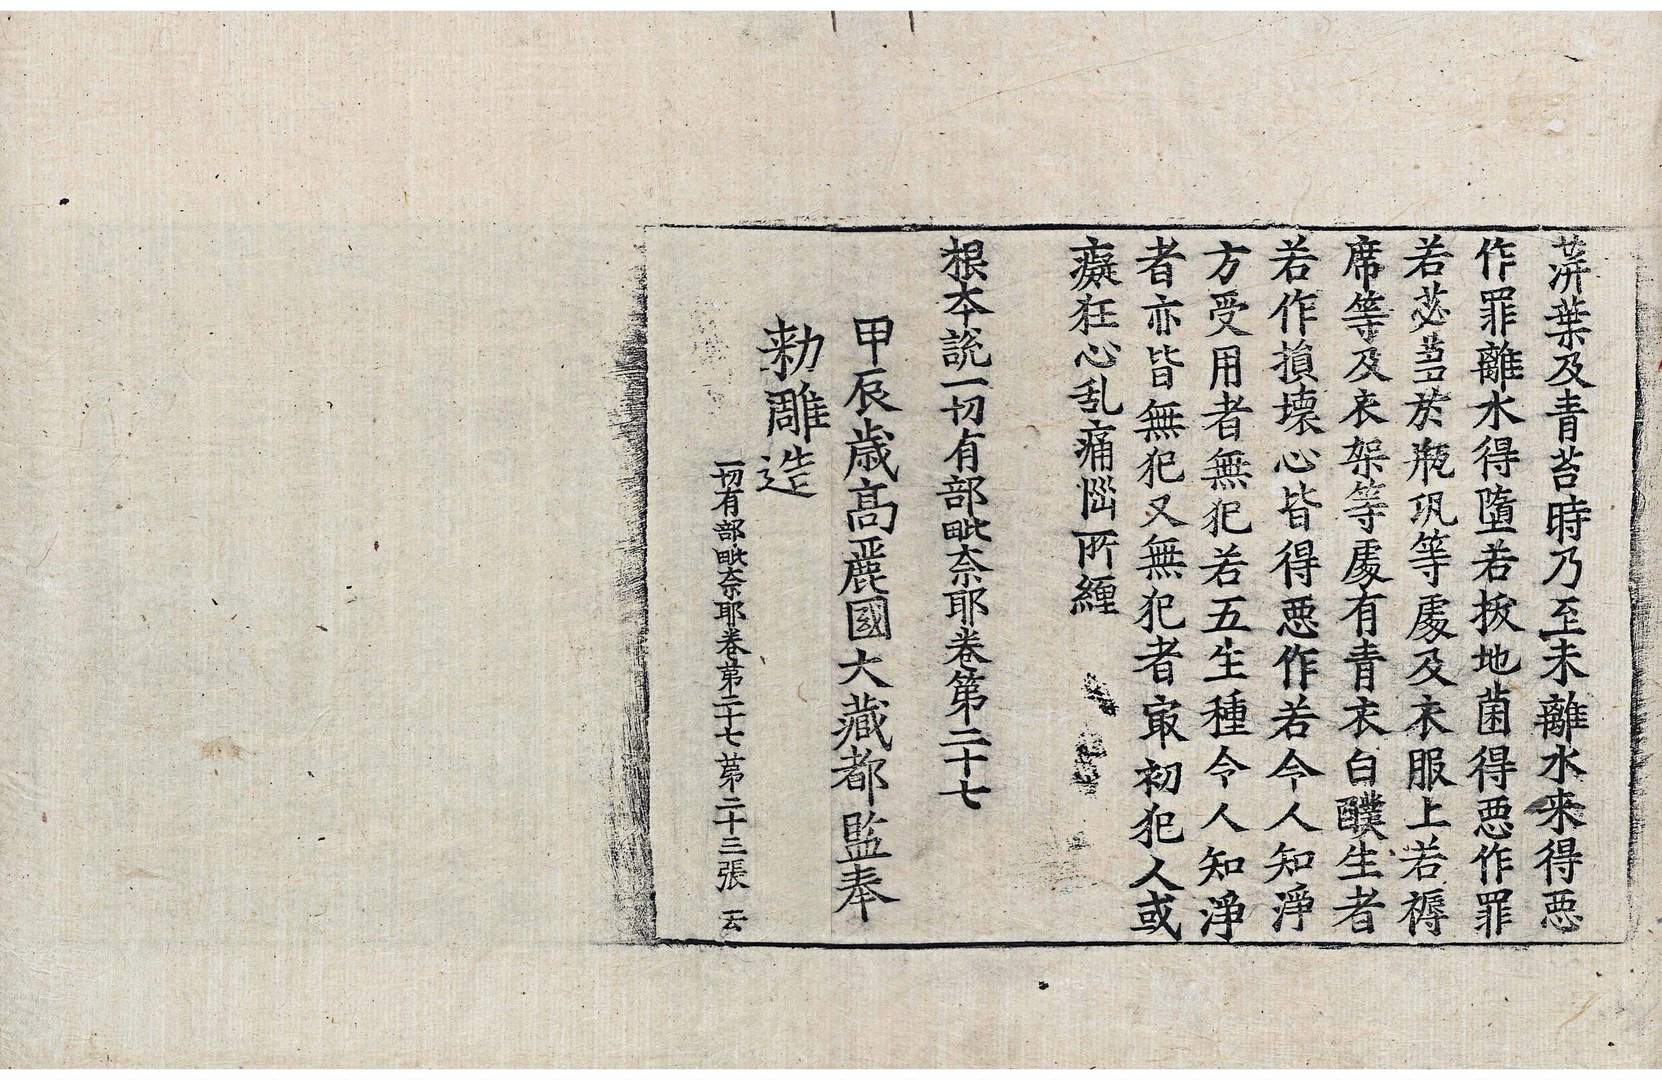 蓱葉及青苔時乃至未離水来得惡
作罪離水得墮若拔地菌得惡作罪
若苾芻於瓶瓨等處及衣服上若褥
席等及衣架等處有青衣白醭生者
若作損壞心皆得惡作若令人知淨
方受用者無犯若五生種令人知淨
者亦皆無犯又無犯者㝡初犯人或
癡狂心乱痛惱所纏
根本說一切有部毗奈耶卷第二十七
甲辰歲高麗國大藏都監奉
勅雕造
一切有部毗奈耶卷第二十七 第二十三張 云